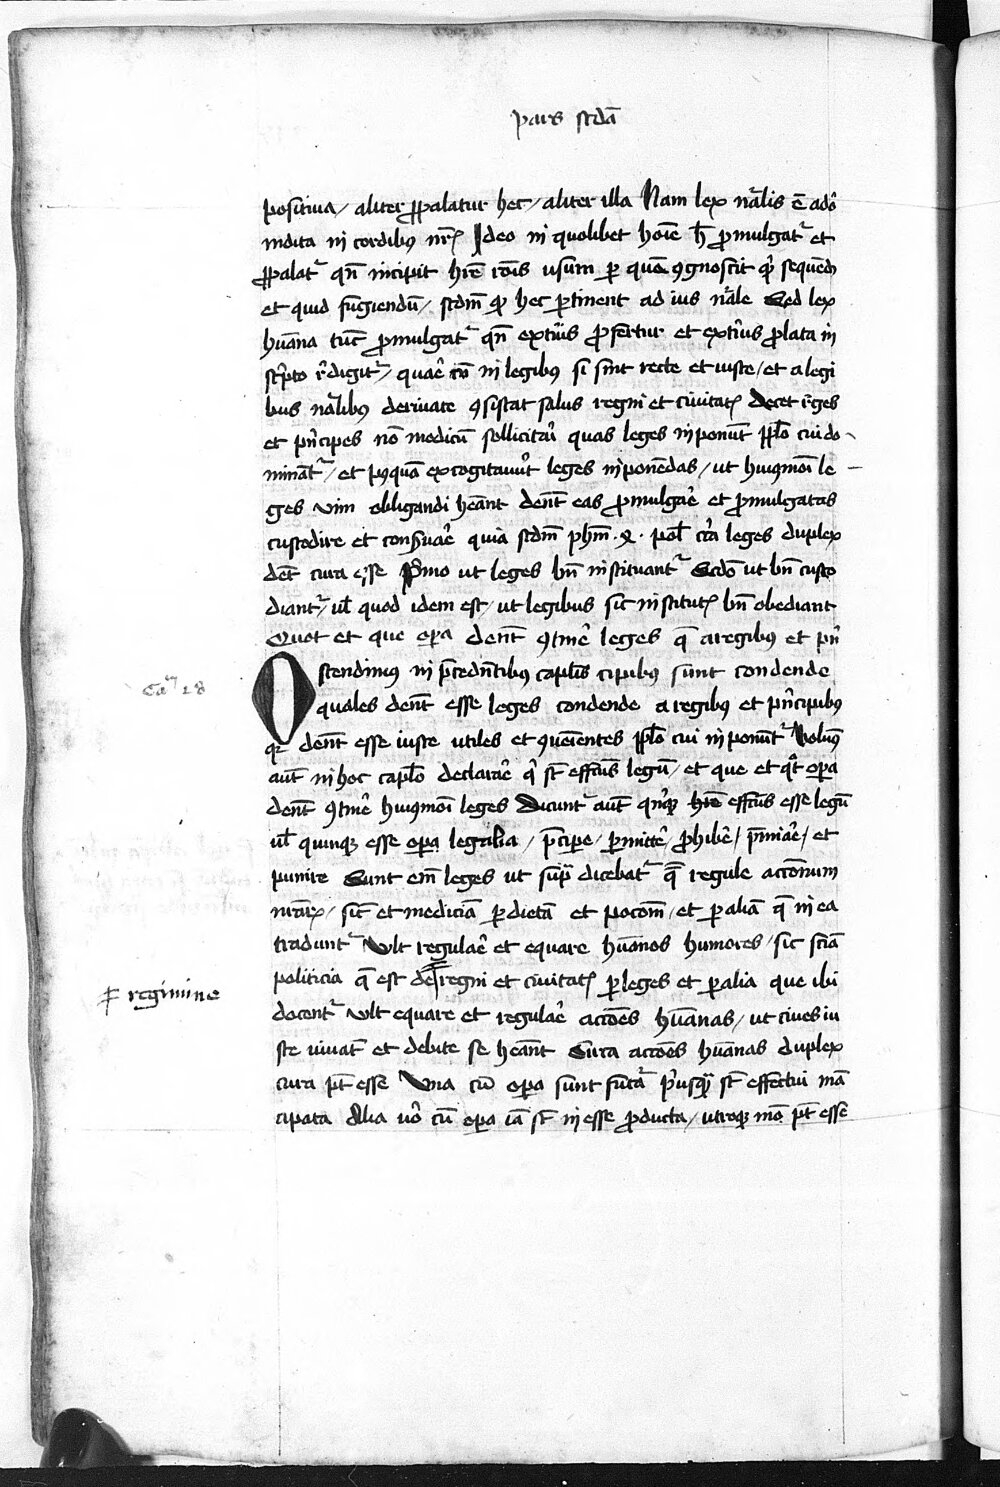 pars scdā
positiua / aliter ꝓpalatur hec / aliter illa Nam lex nr̄alis ē a deo
indita in cordibꝰ nr̄is Ideo in quolibet hoīe h̄ ꝓmulgatʳ et
ꝓpalatʳ qn̄ incipit hr̄e rōis usum per quē ꝯgnoscit qͥ sequendū
et quid fugiendū / scdm̄ qͥ hec ꝑtinent ad ius nr̄ale Sed lex
hūana tūc ꝓmulgatʳ qn̄ extīus ꝓfertur et extīus ꝓlata in
scͥpto rͤdigitʳ / quāē cū in legibꝰ si sint recte et iuste / et a legi
bus nr̄alibꝰ deriuate ꝯsistat salus regni et ciuitatꝭ Decet rͤges
et pͥncipes nō modicū sollicitarͥ quas leges inponūt pplo cui do
minātʳ / et pꝰquā excogitauer̄t leges inponēdas / ut huiꝰmōi le
ges vim obligandi heānt dēnt eas ꝓmulgaͤ et ꝓmulgatas
custodire et conẜuaͤ quia scdm̄ ph̄m . 4 . pol̄ cͥca leges duplex
dēt cura esse Pͥmo ut leges bn̄ instituantʳ Scdō ut bn̄ custo
diantʳ / ul̄ quod idem est / ut legibus sic institutꝭ bn̄ obediant
Quot et que oꝑa dēnt ꝯtineͤ leges q̄ a regibꝰ et pͥn
Ostendimus in p̄cedn̄tibꝰ capl̄is cipibus sunt condende
quales dēnt esse leges condende a regibꝰ et pͥncipibꝰ
qꝛ dēnt esse iuste utiles et ꝯueīentes pplo cui inponūtʳ Volumꝰ
aūt in hoc capl̄o declaraͤ qͥ st̄ effc̄us legū / et que et qͦt oꝑa
dēnt ꝯtineͤ huiꝰmōi leges Dicuntʳ aūt qͥnqꝫ hr̄e effc̄us esse legū
ul̄ quinqꝫ esse oꝑa legalia / p̄ciꝑe / ꝑmitteͤ / ꝓhibeͤ / p̄miaͤ / et
punire Sunt em̄ leges ut supͣ dicebatʳ q̄ regule actōnum
nr̄aꝝ / sic̄ et medicīa ꝑ dietā et pocōm / et ꝑ aliā q̄ in ea
tradūntʳ Vult regulaͤ et equare hūanos humores / sic scīa
politicia q̄ est de regni et ciuitatꝭ ꝑ leges et ꝑ alia que ibi
docentʳ Vult equare et regulaͤ actōes hūanas / ut ciues iu
ste uiuāt et debite se heānt Circa actōes hūanas duplex
cura pt̄ esse Vna cū oꝑa sunt futͣa pͥusqͣ st̄ effectui mā
cipata Alia uͦ cū oꝑa iā st̄ in esse ꝓducta / utroqꝫ mō pt̄ esse
Caᵐ 28
regimine